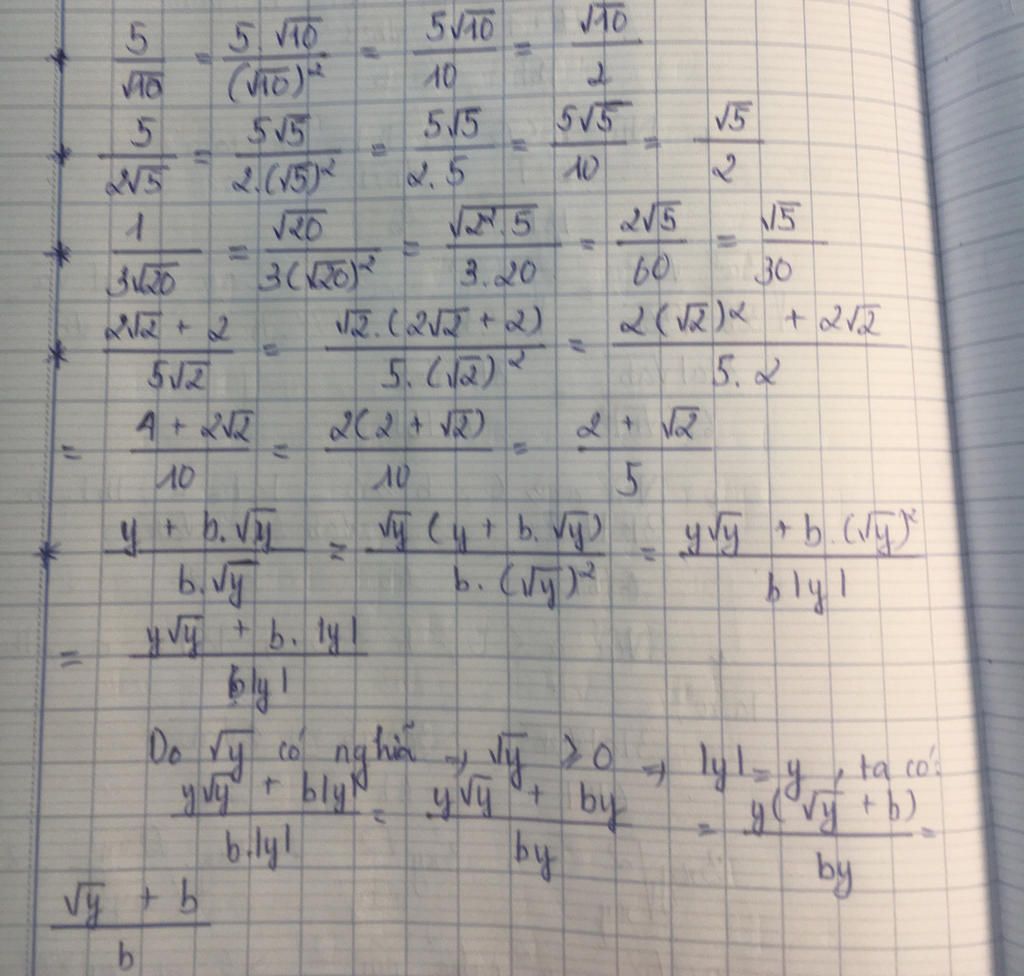 * 5/√10 = 5√10/(√10)² = 5√10/10 = √10/2
* 5/2√5 = 5√5/2.(√5)² = 5√5/2.5 = 5√5/10 = √5/2
* 1/3√20 = √20/3(√20)² = √2².5/3.20 = 2√5/60 = √5/30
* 2√2 + 2/5√2 = √2.(2√2 + 2)/5.(√2)² = 2(√2)² + 2√2/5.2
= 4 + 2√2/10 = 2(2 + √2)/10 = 2 + √2/5
* y + b.√y/b.√y = √y (y + b.√y)/b.(√y)² = y√y + b.(√y)²/b|y|
= y√y + b.|y|/b|y|
Do √y có nghĩa → √y ≥ 0 → |y| = y, ta có:
y√y + b|y|/b.|y| = y√y + by/by = y(√y + b)/by =
√y + b/b